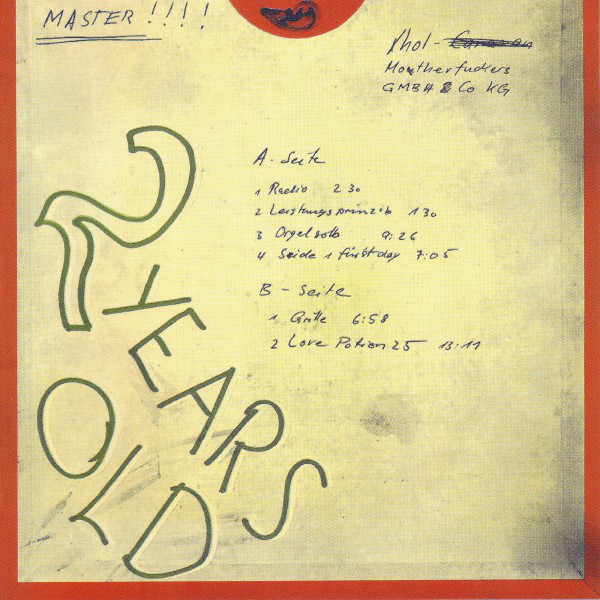 MASTER !!!!
Xhol-
Moutherfuckers
GMBH & Co KG
A - Seite
1 Radio 2 30
2 Leistungsprinzib 1 30
3 Orgelsolo 9:26
4 Seide 1 first day 7:05
B - Seite
1 Grille 6:58
2 Love Potion 25 13:11
2
YEARS
OLD